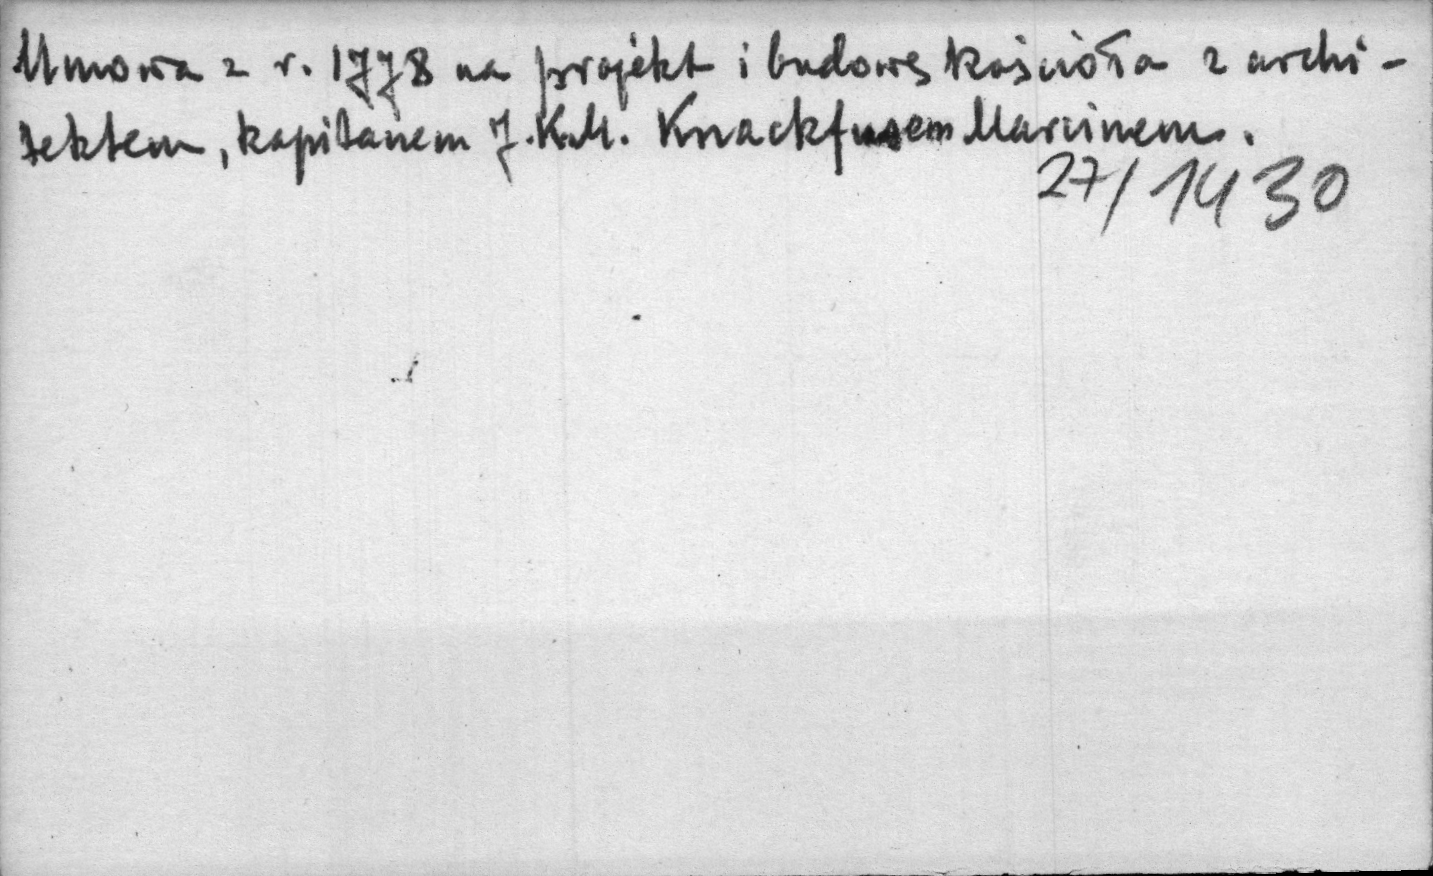 Umowa z r. 1778 na projekt i budowę kościoła z archi-
tektem, kapitanem J.K.M. Knackfusem Marcinem.
27/1430